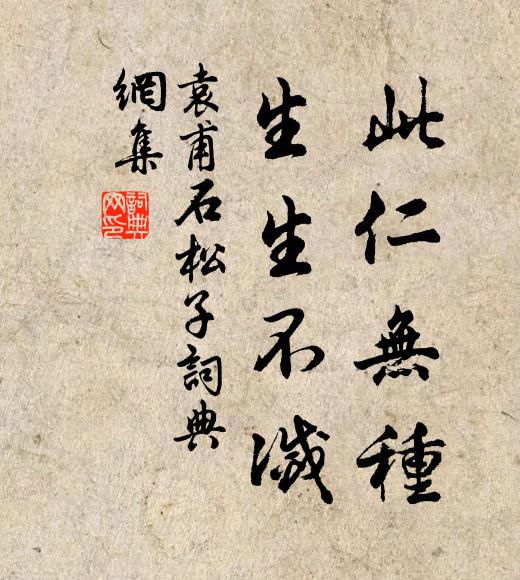 此仁無種
生生不滅
袁甫石松子詞典
網集
詞典網印